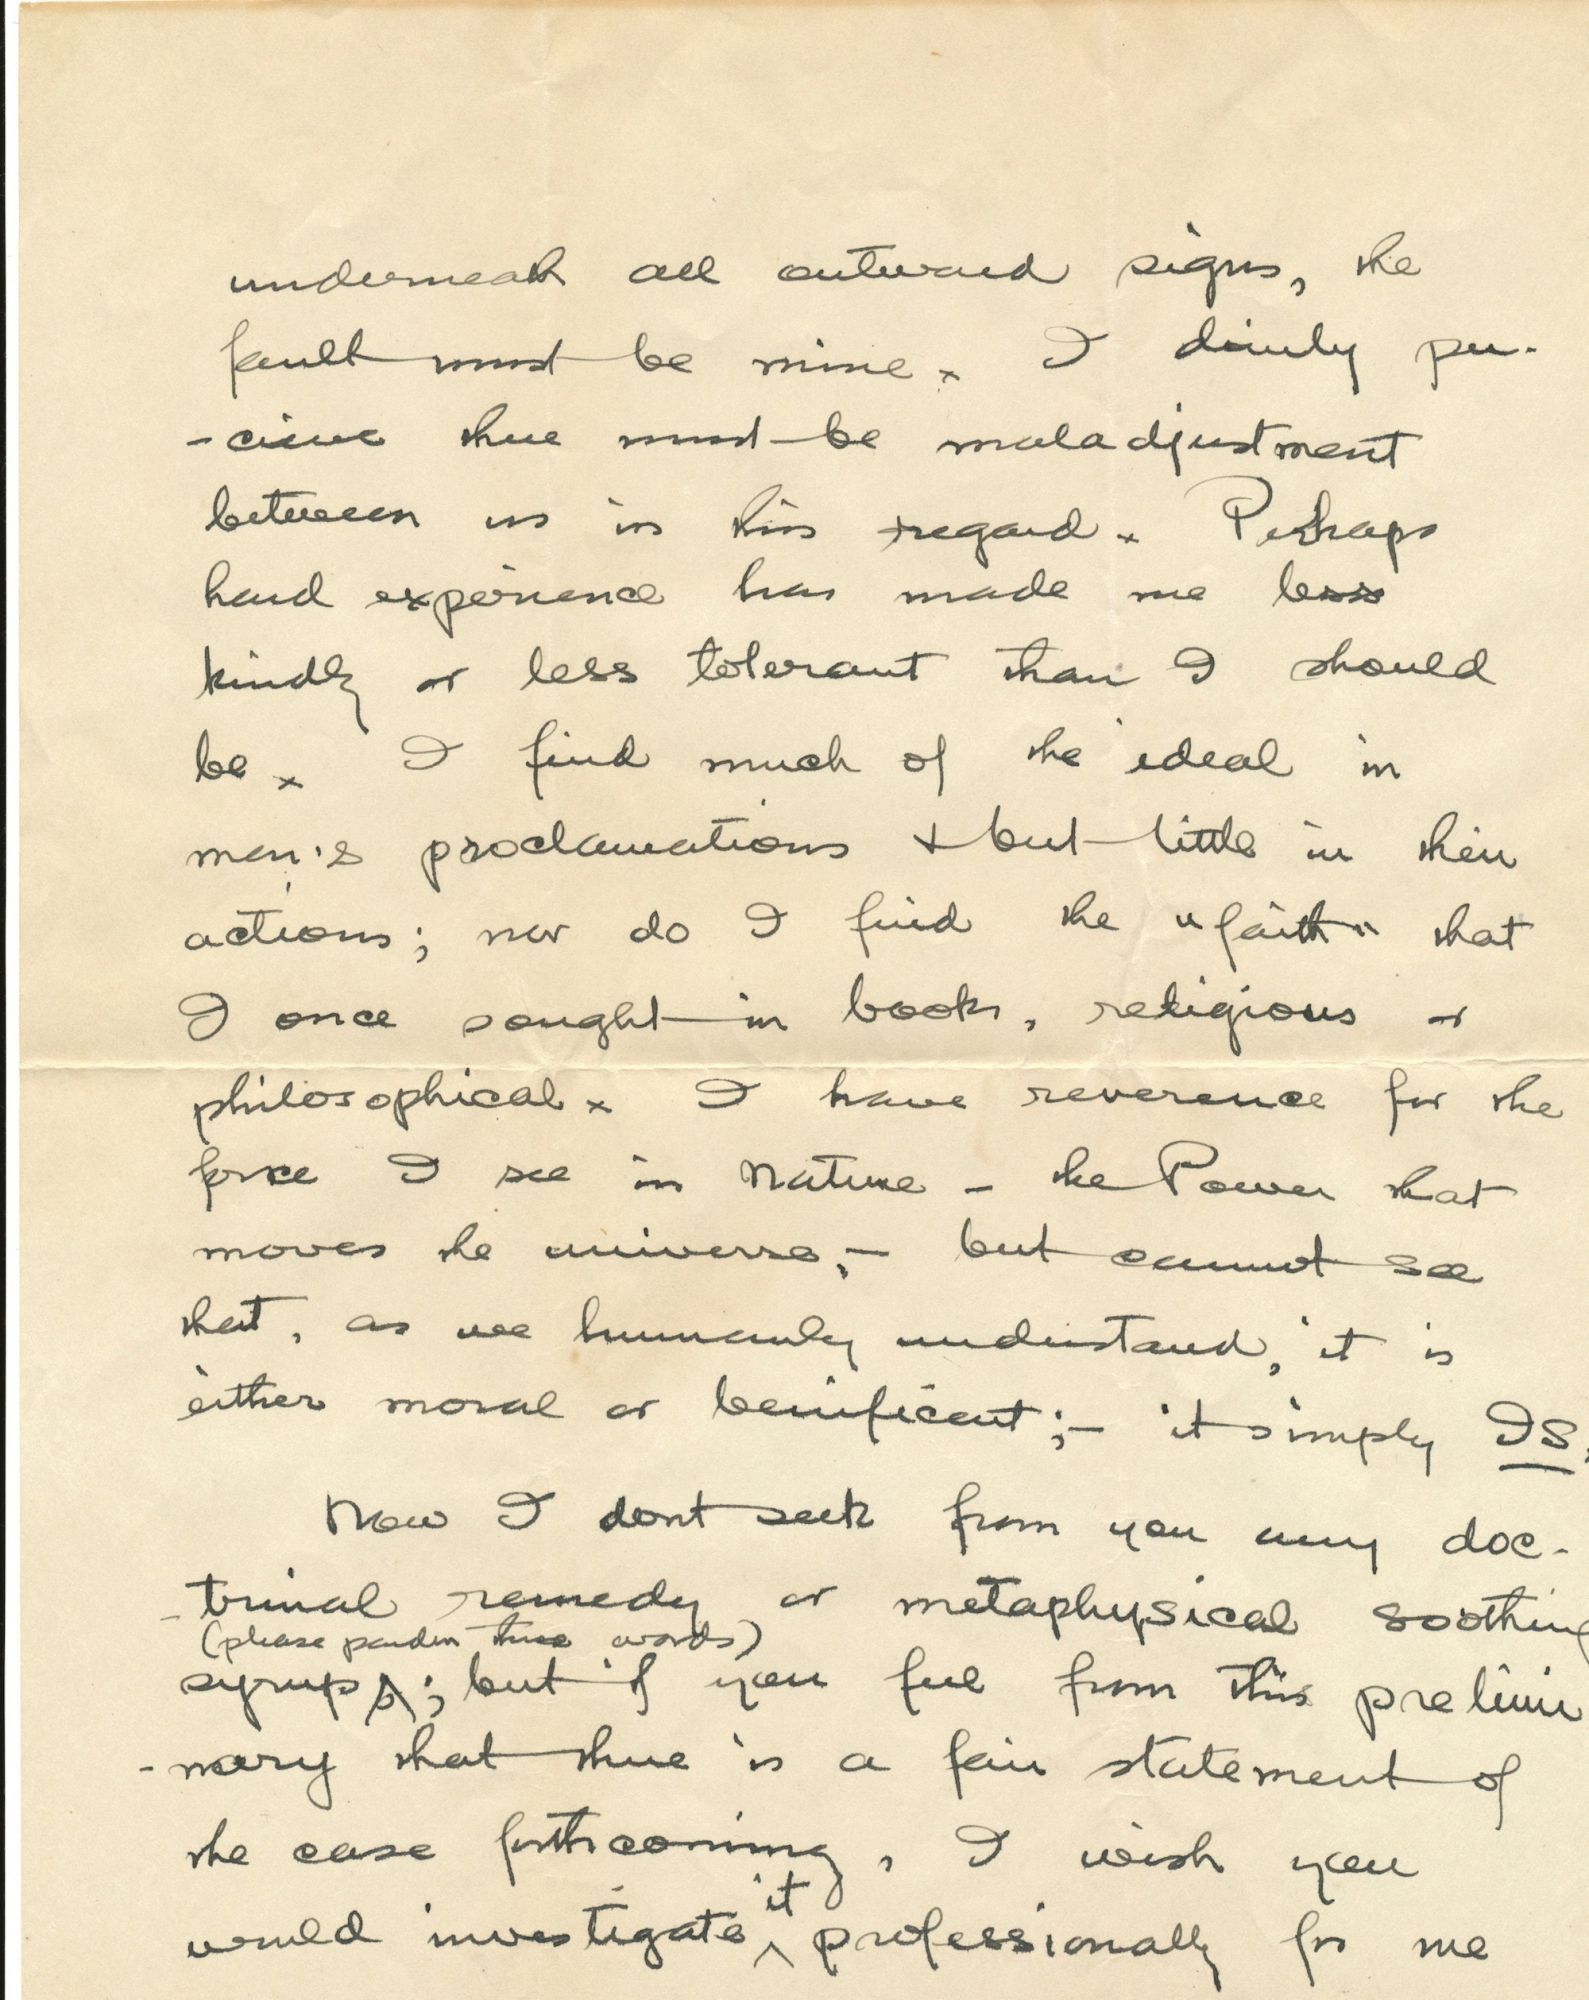 underneath all outward signs, the
fault must be mine. I dimly per-
-cieve there must be maladjustment
between us in this regard. Perhaps
hard experience has made me less
kindly or less tolerant than I should
be. I find much of the ideal in
men's proclamations & but little in their
actions; nor do I find the "faith" that
I once sought in books, religious or
philosophical. I have reverence for the
force I see in Nature - the Power that
moves the universe, - but cannot see
that, as we humanly understand, it is
either moral or benificent; - it simply IS.
Now I dont seek from you any doc-
-trinal remedy or metaphysical soothing
(please pardon these words)
syrups; but if you feel from this prelimi
-nary that there is a fair statement of
the case forthcoming, I wish you
would investigate it professionally for me